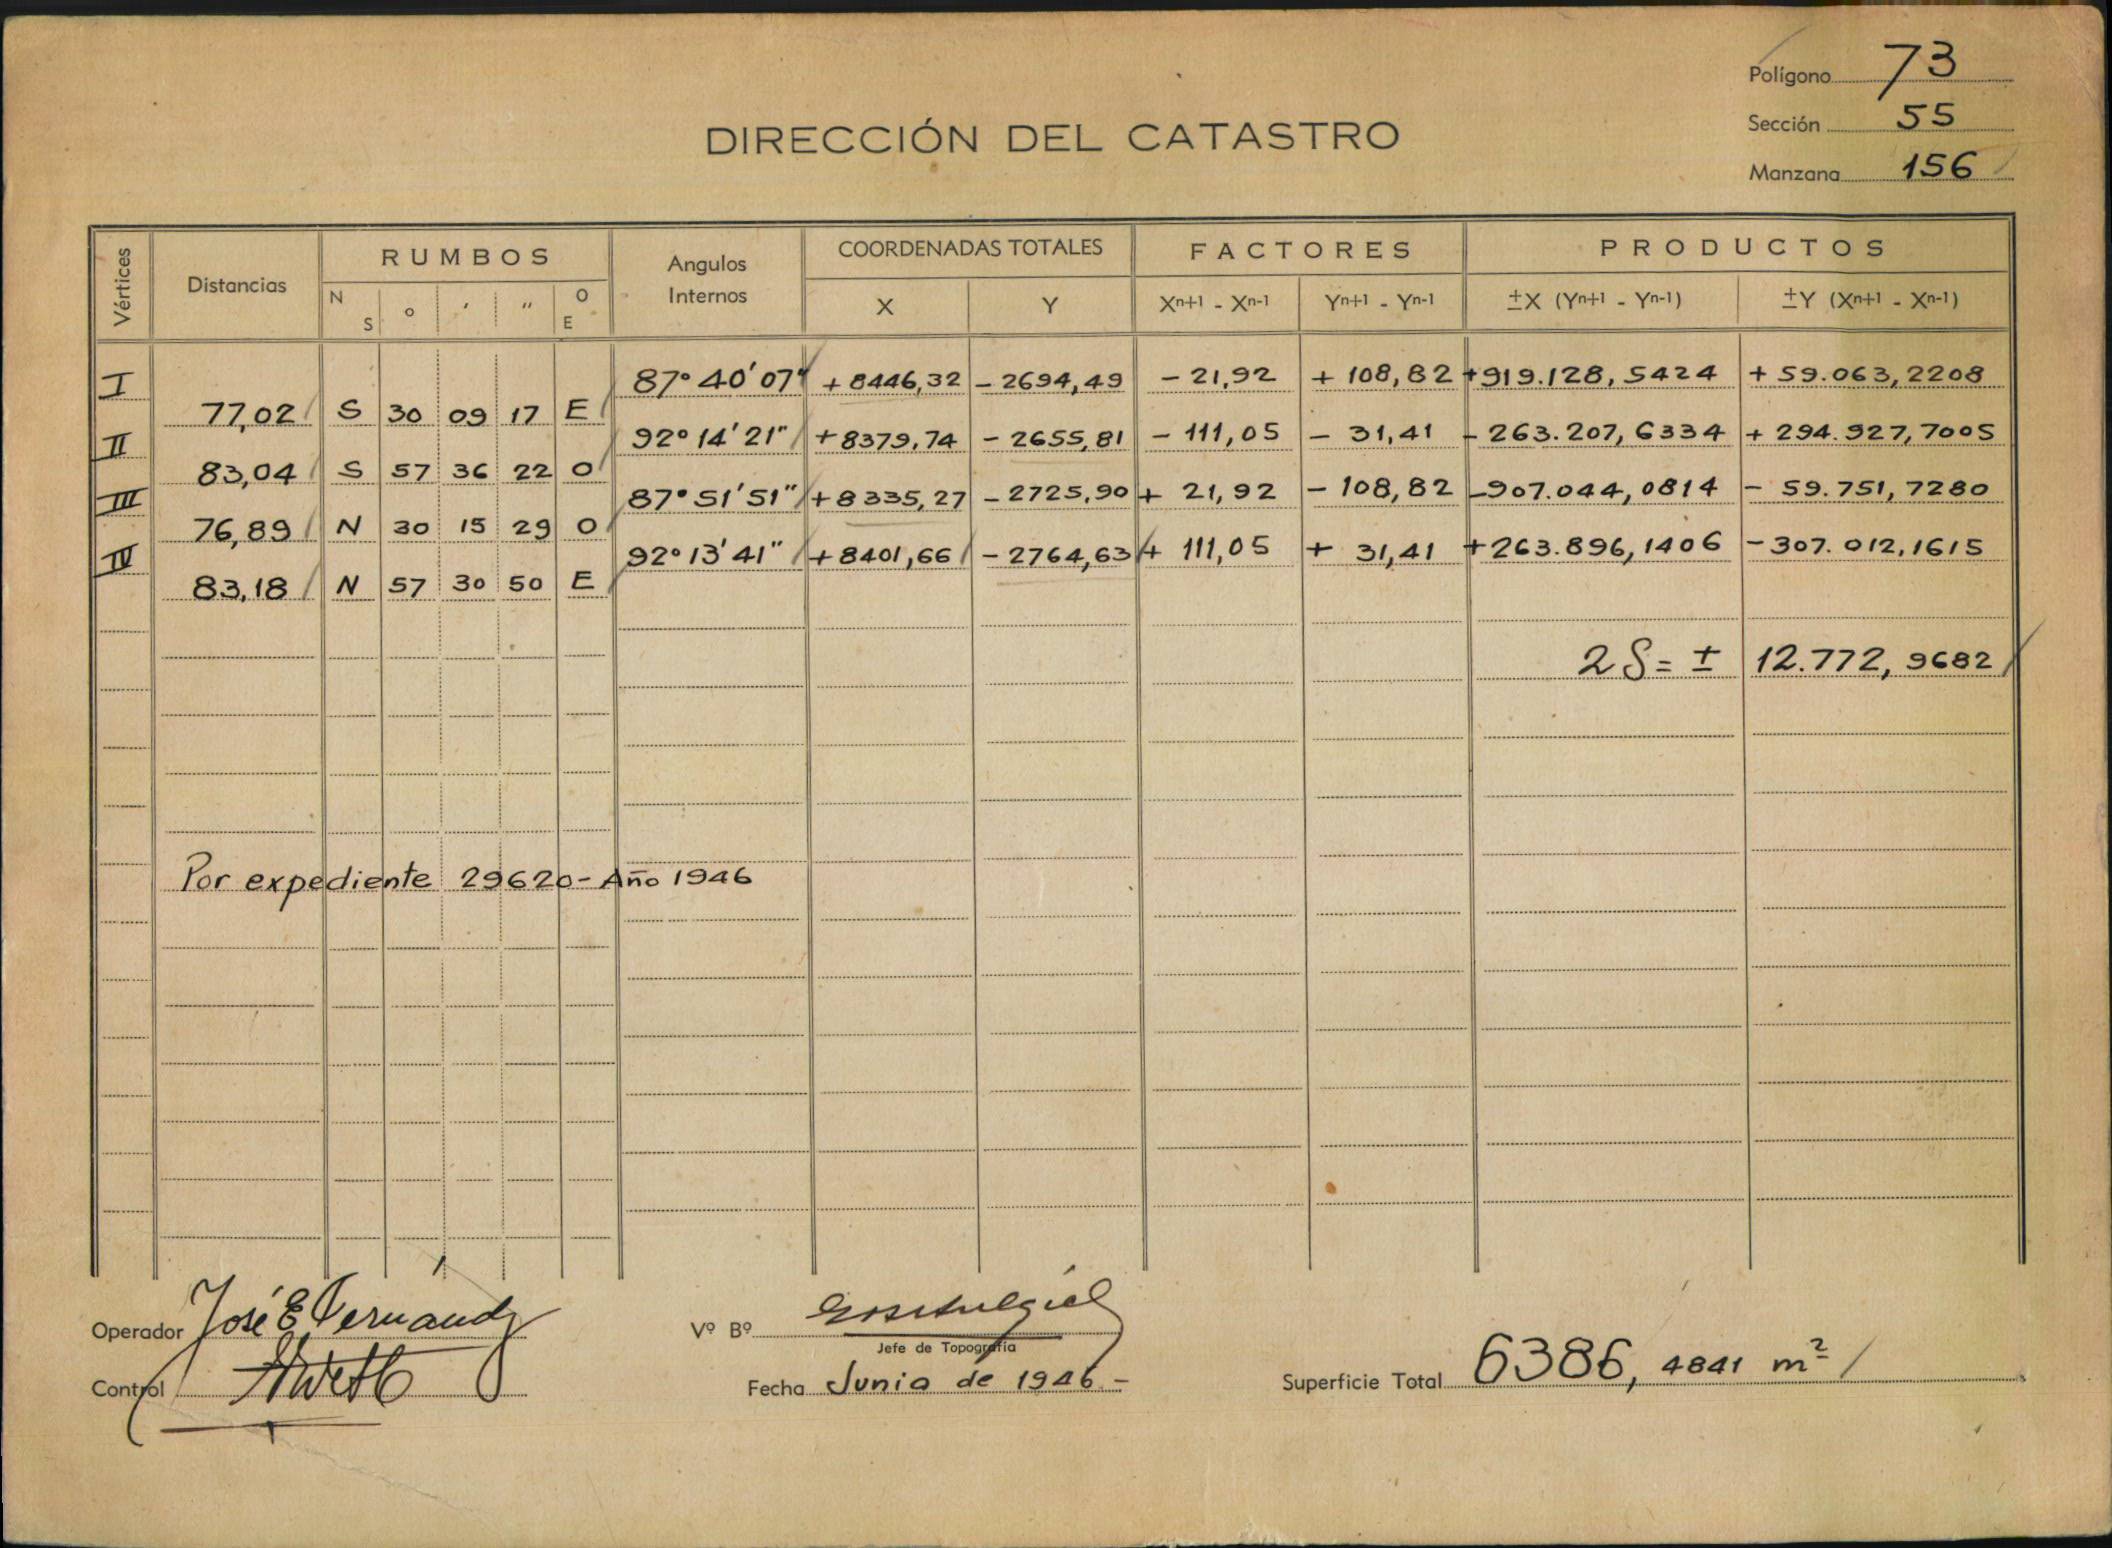 Polígono 73
Sección 55
Manzana 156
DIRECCIÓN DEL CATASTRO
Vértices Distancias RUMBOS Angulos Internos COORDENADAS TOTALES FACTORES PRODUCTOS
N S o ′ ″ O E X Y Xn+1 - Xn-1 Yn+1 - Yn-1 ±X (Yn+1 - Yn-1) ±Y (Xn+1 - Xn-1)
I 87° 40' 07" + 8446,32 - 2694,49 - 21,92 + 108,82 +919.128,5424 + 59.063,2208
77,02 S 30 09 17 E
II 92° 14' 21" + 8379,74 - 2655,81 - 111,05 - 31,41 - 263.207,6334 + 294.927,7005
83,04 S 57 36 22 O
III 87° 51' 51" + 8335,27 - 2725,90 + 21,92 - 108,82 -907.044,0814 - 59.751,7280
76,89 N 30 15 29 O
IV 92° 13' 41" + 8401,66 - 2764,63 + 111,05 + 31,41 +263.896,1406 - 307.012,1615
83,18 N 57 30 50 E
2 S = ± 12.772,9682
Por expediente 29620 - Año 1946
Operador José E Fernández
Vº Bº
Jefe de Topografía
Control
Fecha Junio de 1946 -
Superficie Total 6386,4841 m²